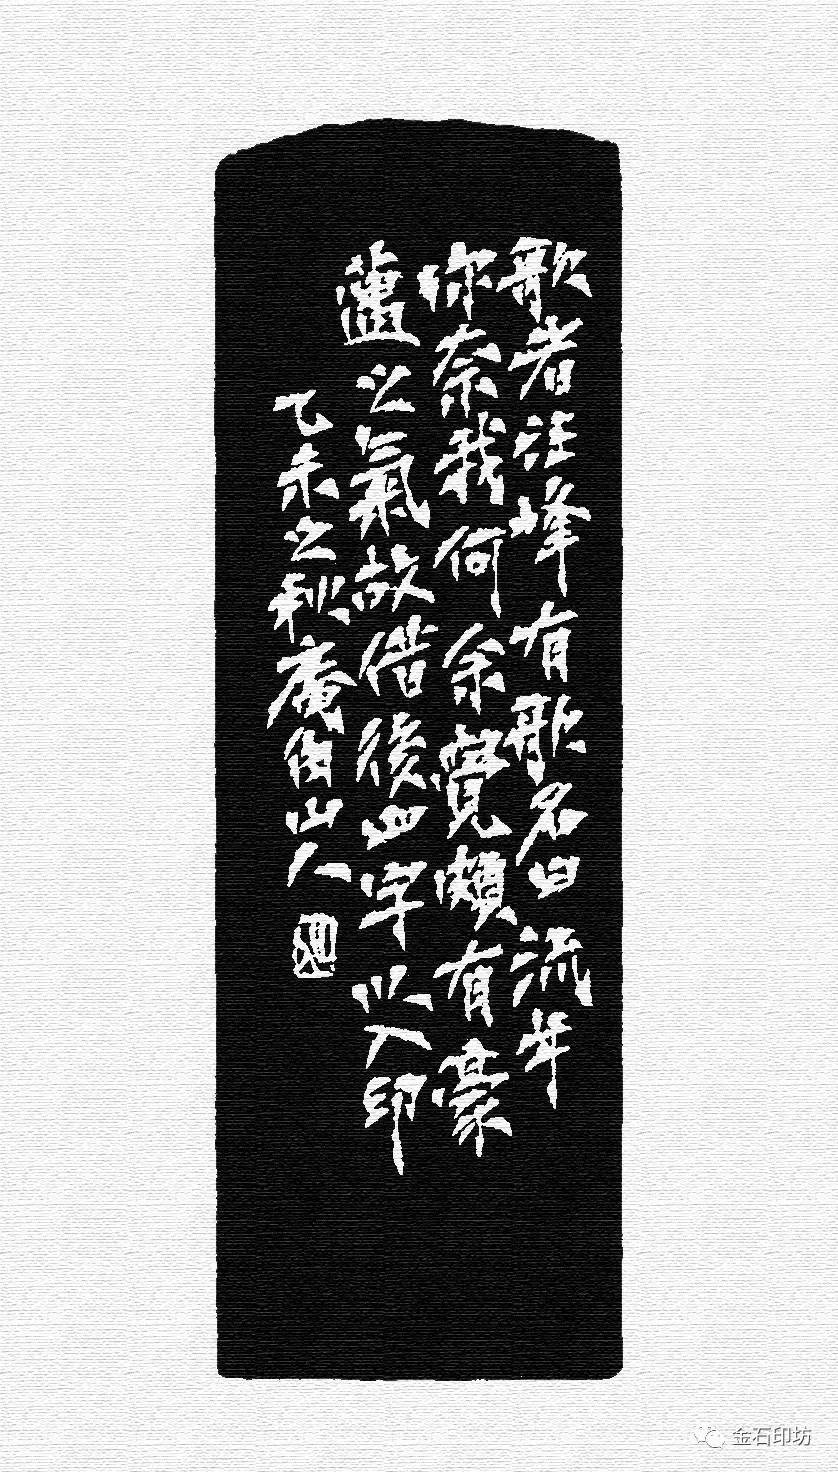 歌者汪峰有歌名曰流年
你奈我何余覺頗有豪
蘯之氣故借後四字以入印
乙未之秋庵山人
金石印坊